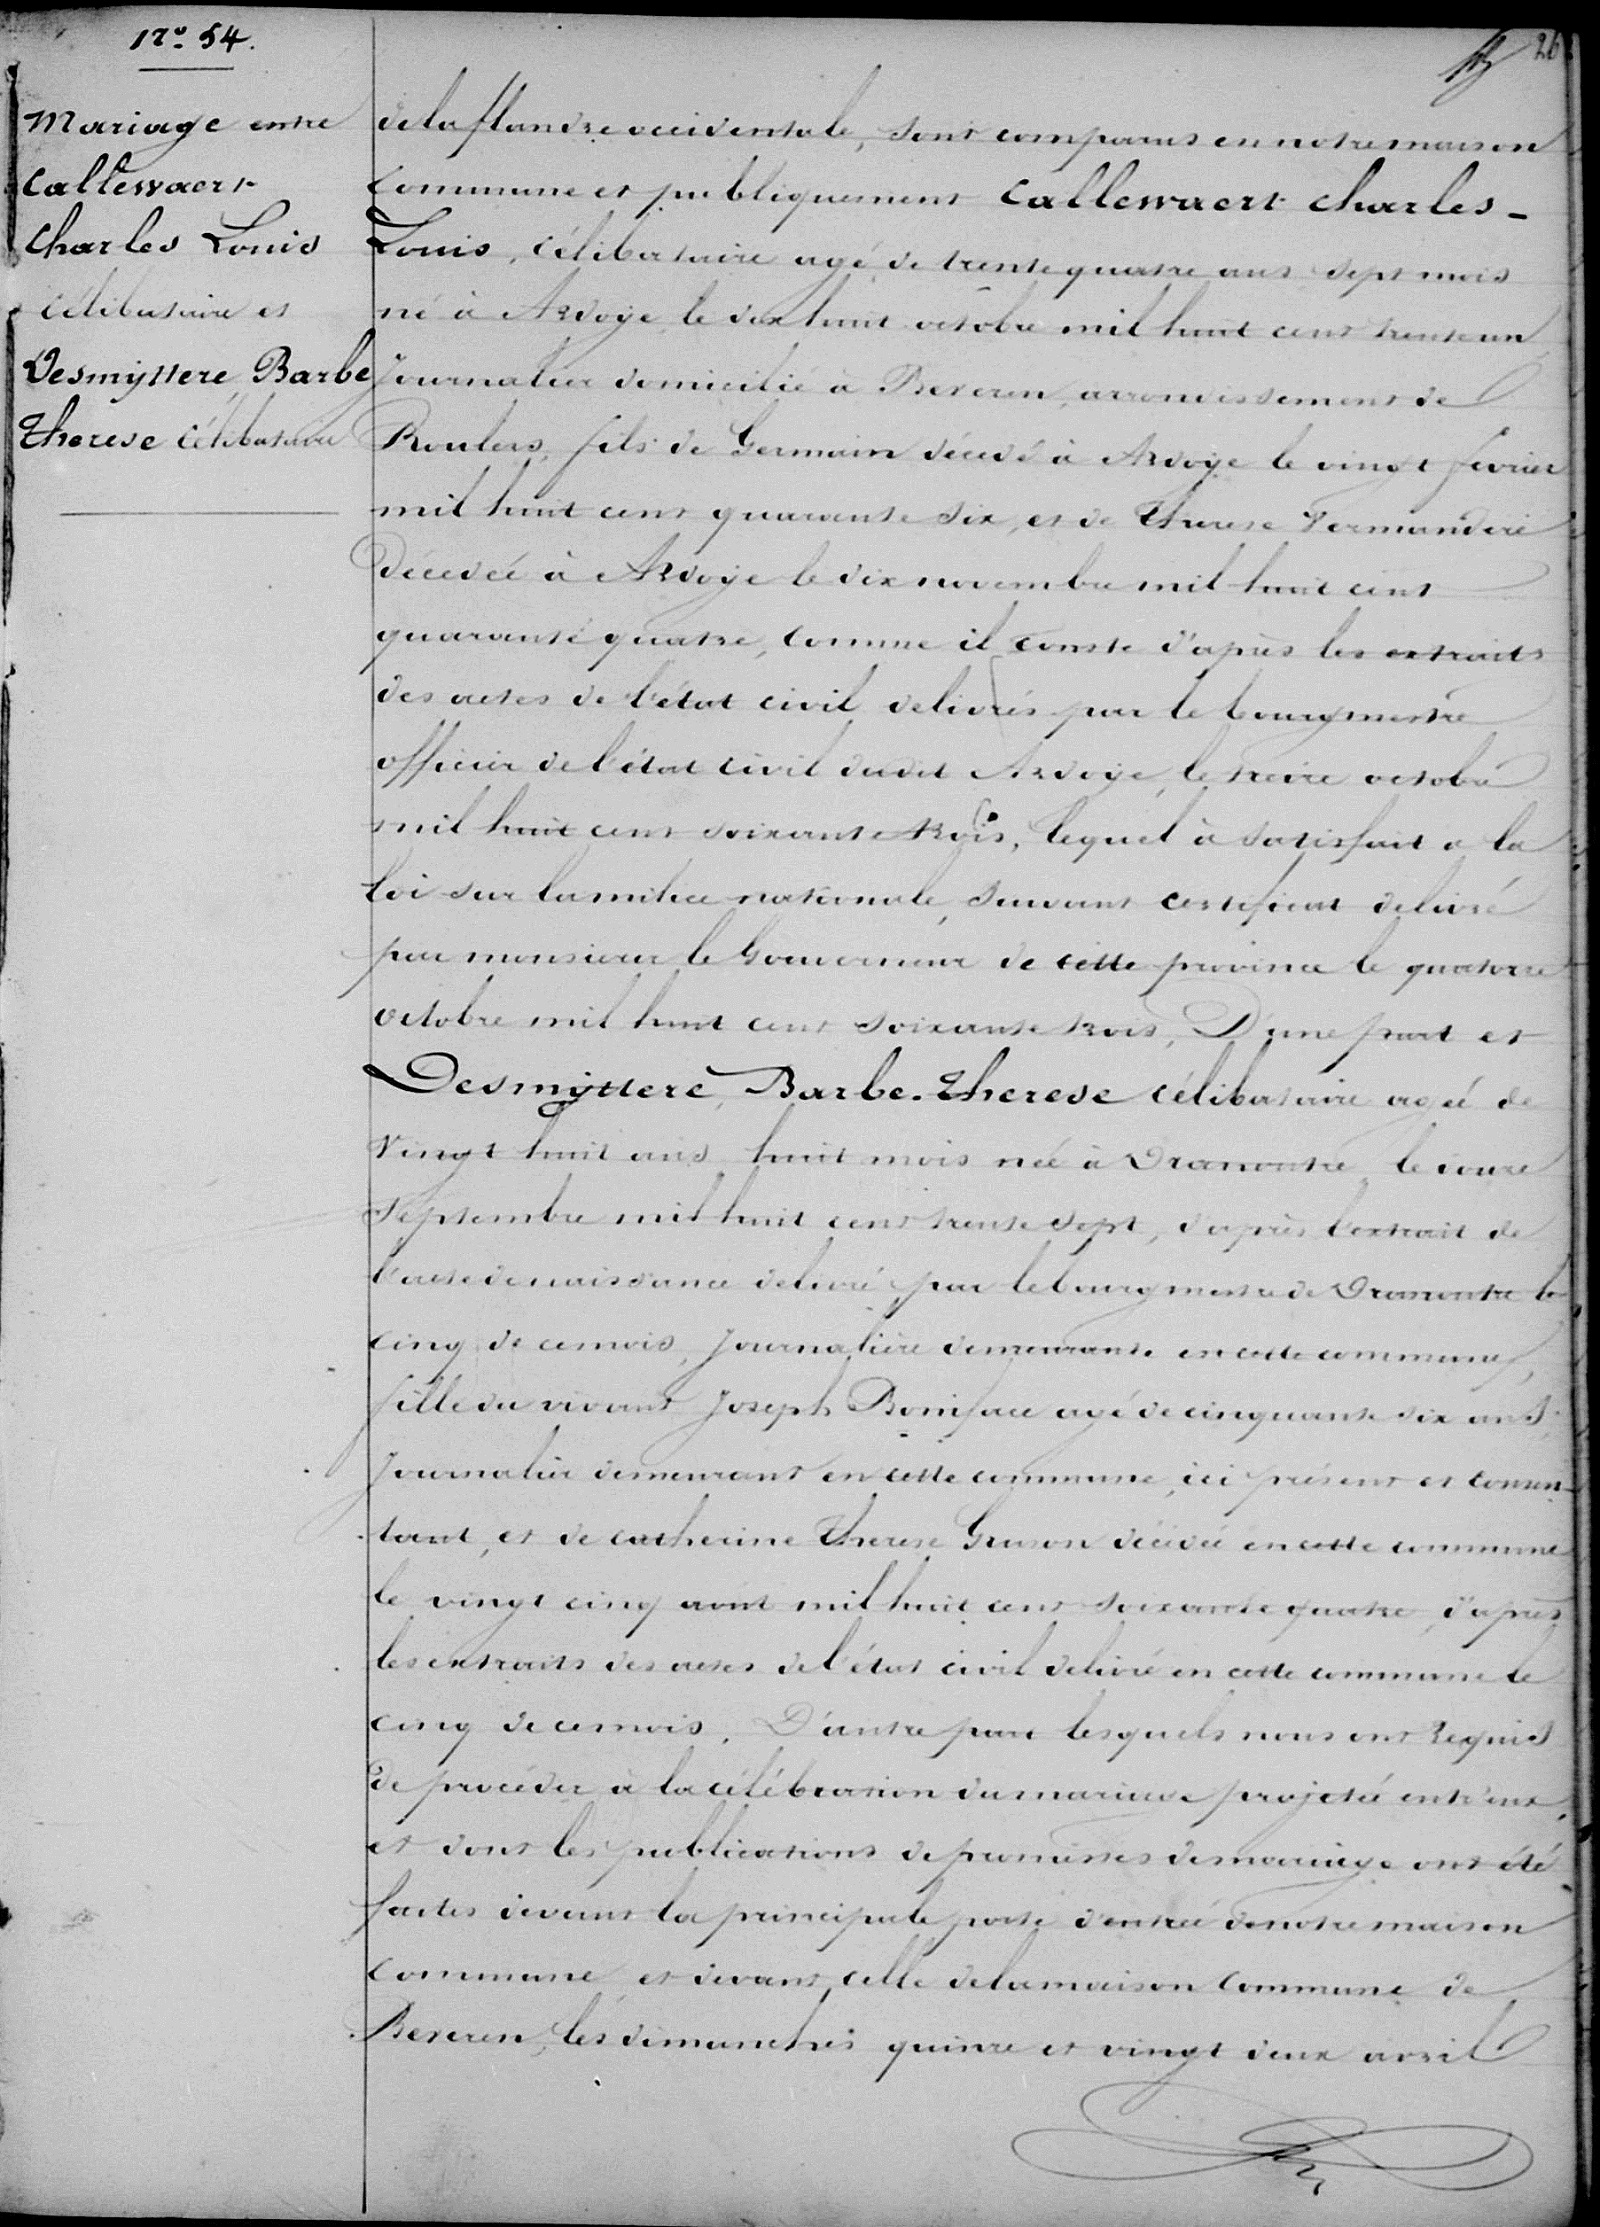 N.º 54.
26
Mariage entre
Callewaert
Charles Louis
célibataire et
Desmyttere, Barbe
Therese célibataire
de la flandre occidentale, sont comparus en notre maison
commune et publiquement Callewaert Charles-
Louis, célibataire agé de trente quatre ans sept mois
né à Ardoye le dix huit octobre mil huit cent trente un
Journalier domicilié à Beveren, arrondissement de
Roulers, fils de Germain décedé à Ardoye le vingt fevrier
mil huit cent quarante six, et de Therese Vermandere
décedée à Ardoye le dix novembre mil huit cent
quarante quatre, comme il conste d'après les extraits
des actes de l'état civil delivrés par le bourgmestre
officier de l'état civil dudit Ardoye, le treize octobre
mil huit cent soixante trois, lequel à satisfait a la
loi sur la milice nationale, suivant certificat delivré
par monsieur le Gouverneur de cette province le quatorze
octobre mil huit cent soixante trois, D'une part et
Desmyttere, Barbe-Therese célibataire ageé de
vingt huit ans huit mois née à Dranoutre le onze
Septembre mil huit cent trente sept, d'après l'extrait de
l'acte de naissance delivré par le bourgmestre de Dranoutre le
cinq de ce mois, Journalière demeurante en cette commune,
fille du vivant Joseph Boniface agé de cinquante six ans
Journalier demeurant en cette commune, ici présent et consen-
tant, et de Catherine Therese Gruson décédée en cette commune
le vingt cinq aout mil huit cent soixante quatre, d'après
les extraits des actes de l'état civil delivré en cette commune le
cinq de ce mois. D'autre part lesquels nous ont requis
de procéder à la célébration du mariage projetée entr'eux,
et dont les publications de promesses de mariage ont été
faites devant la principale porte d'entrée de notre maison
commune et devant celle de la maison commune de
Beveren, les dimanches quinze et vingt deux avril